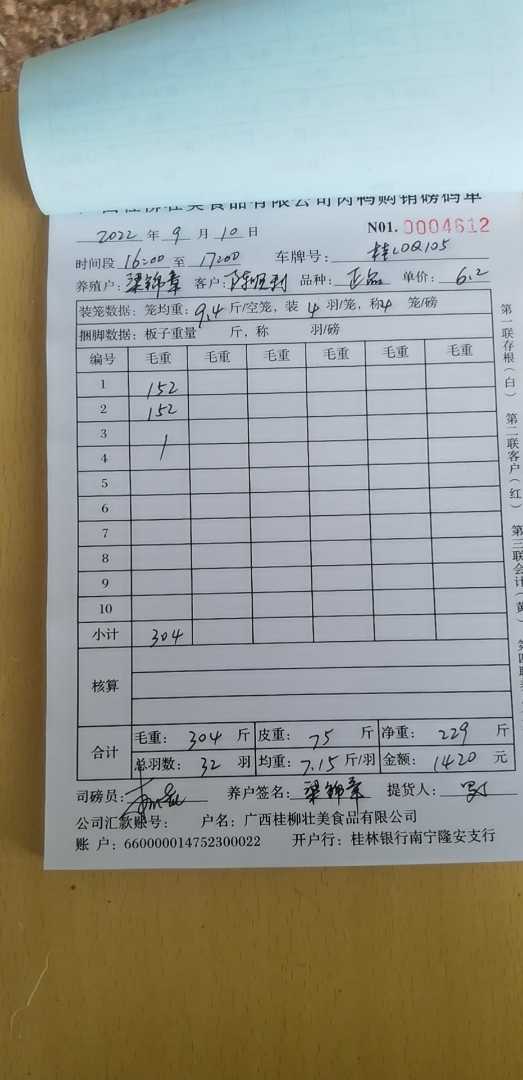 美食品有限公司肉鸭购销磅码单
2022 年 9 月 10 日 N01. 0004612
时间段 16:00 至 17:00 车牌号:
养殖户: 梁锦章 客户: 陈胜利 品种: 正品 单价: 6.2
装笼数据: 笼均重: 9.4 斤/空笼, 装 4 羽/笼, 称 4 笼/磅
捆脚数据: 板子重量 斤, 称 羽/磅
编号 毛重 毛重 毛重 毛重 毛重 毛重
1 152
2 152
3
4
5
6
7
8
9
10
小计 304
核算
合计 毛重: 304 斤 皮重: 75 斤 净重: 229 斤
总羽数: 32 羽 均重: 7.15 斤/羽 金额: 1420 元
司磅员: 养户签名: 梁锦章 提货人:
公司汇款账号: 户名: 广西桂柳壮美食品有限公司
账 户: 660000014752300022 开户行: 桂林银行南宁隆安支行
第一联存根(白) 第二联客户(红) 第三联会计(黄)